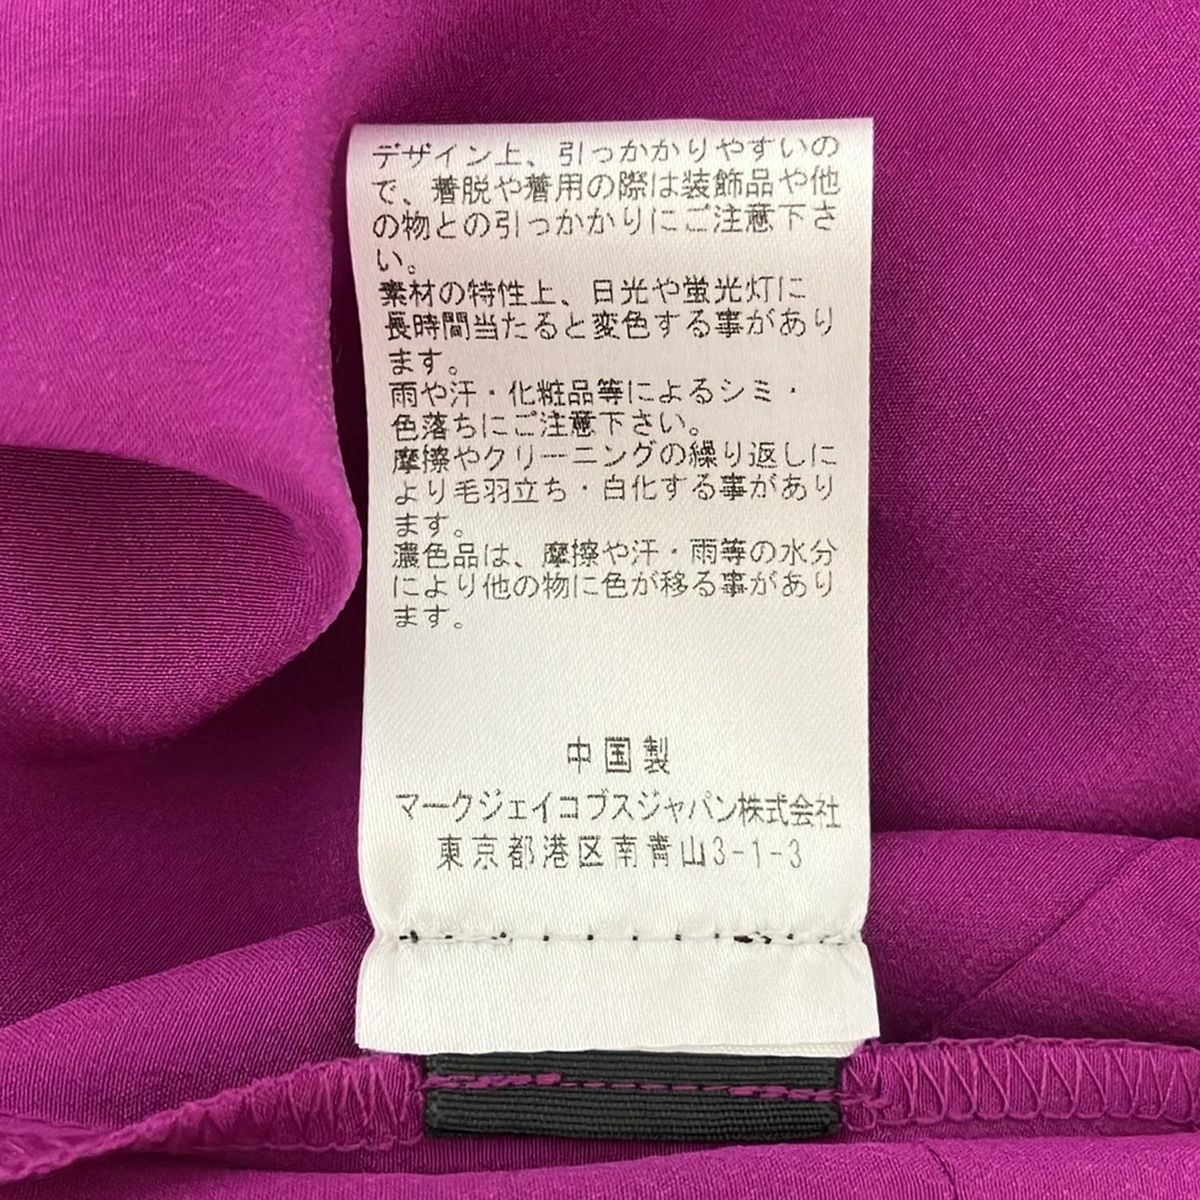 デザイン上、引っかかりやすいの
で、着脱や着用の際は装飾品や他
の物との引っかかりにご注意下さ
い。
素材の特性上、日光や蛍光灯に
長時間当たると変色する事があり
ます。
雨や汗・化粧品等によるシミ・
色落ちにご注意下さい。
摩擦やクリーニングの繰り返しに
より毛羽立ち・白化する事があり
ます。
濃色品は、摩擦や汗・雨等の水分
により他の物に色が移る事があり
ます。
中国製
マークジェイコブスジャパン株式会社
東京都港区南青山3-1-3